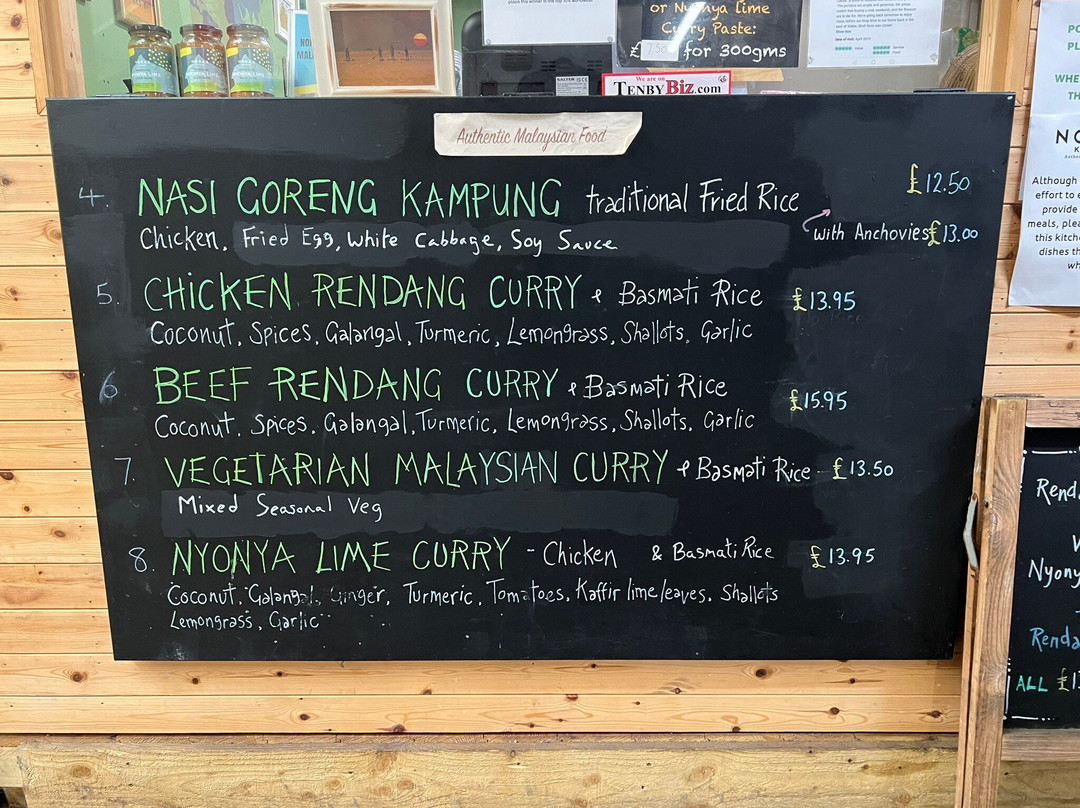 or Nyonya lime
Curry Paste:
£ 7.50 for 300gms
We are on
TENBYBIZ.com
Authentic Malaysian Food
4. NASI GORENG KAMPUNG traditional Fried Rice £12.50
Chicken, Fried Egg, White Cabbage, Soy Sauce
with Anchovies £13.00
5. CHICKEN RENDANG CURRY & Basmati Rice £13.95
Coconut, Spices, Galangal, Turmeric, Lemongrass, Shallots, Garlic
6 BEEF RENDANG CURRY & Basmati Rice £15.95
Coconut, Spices, Galangal, Turmeric, Lemongrass, Shallots, Garlic
7. VEGETARIAN MALAYSIAN CURRY & Basmati Rice - £13.50
Mixed Seasonal Veg
8. NYONYA LIME CURRY - Chicken & Basmati Rice £13.95
Coconut, Galangal, Ginger, Turmeric, Tomatoes, Kaffir lime leaves, Shallots
Lemongrass, Garlic
Although
effort to
provide
meals, plea
this kitch
dishes th
Rend
Nyony
Renda
ALL £1